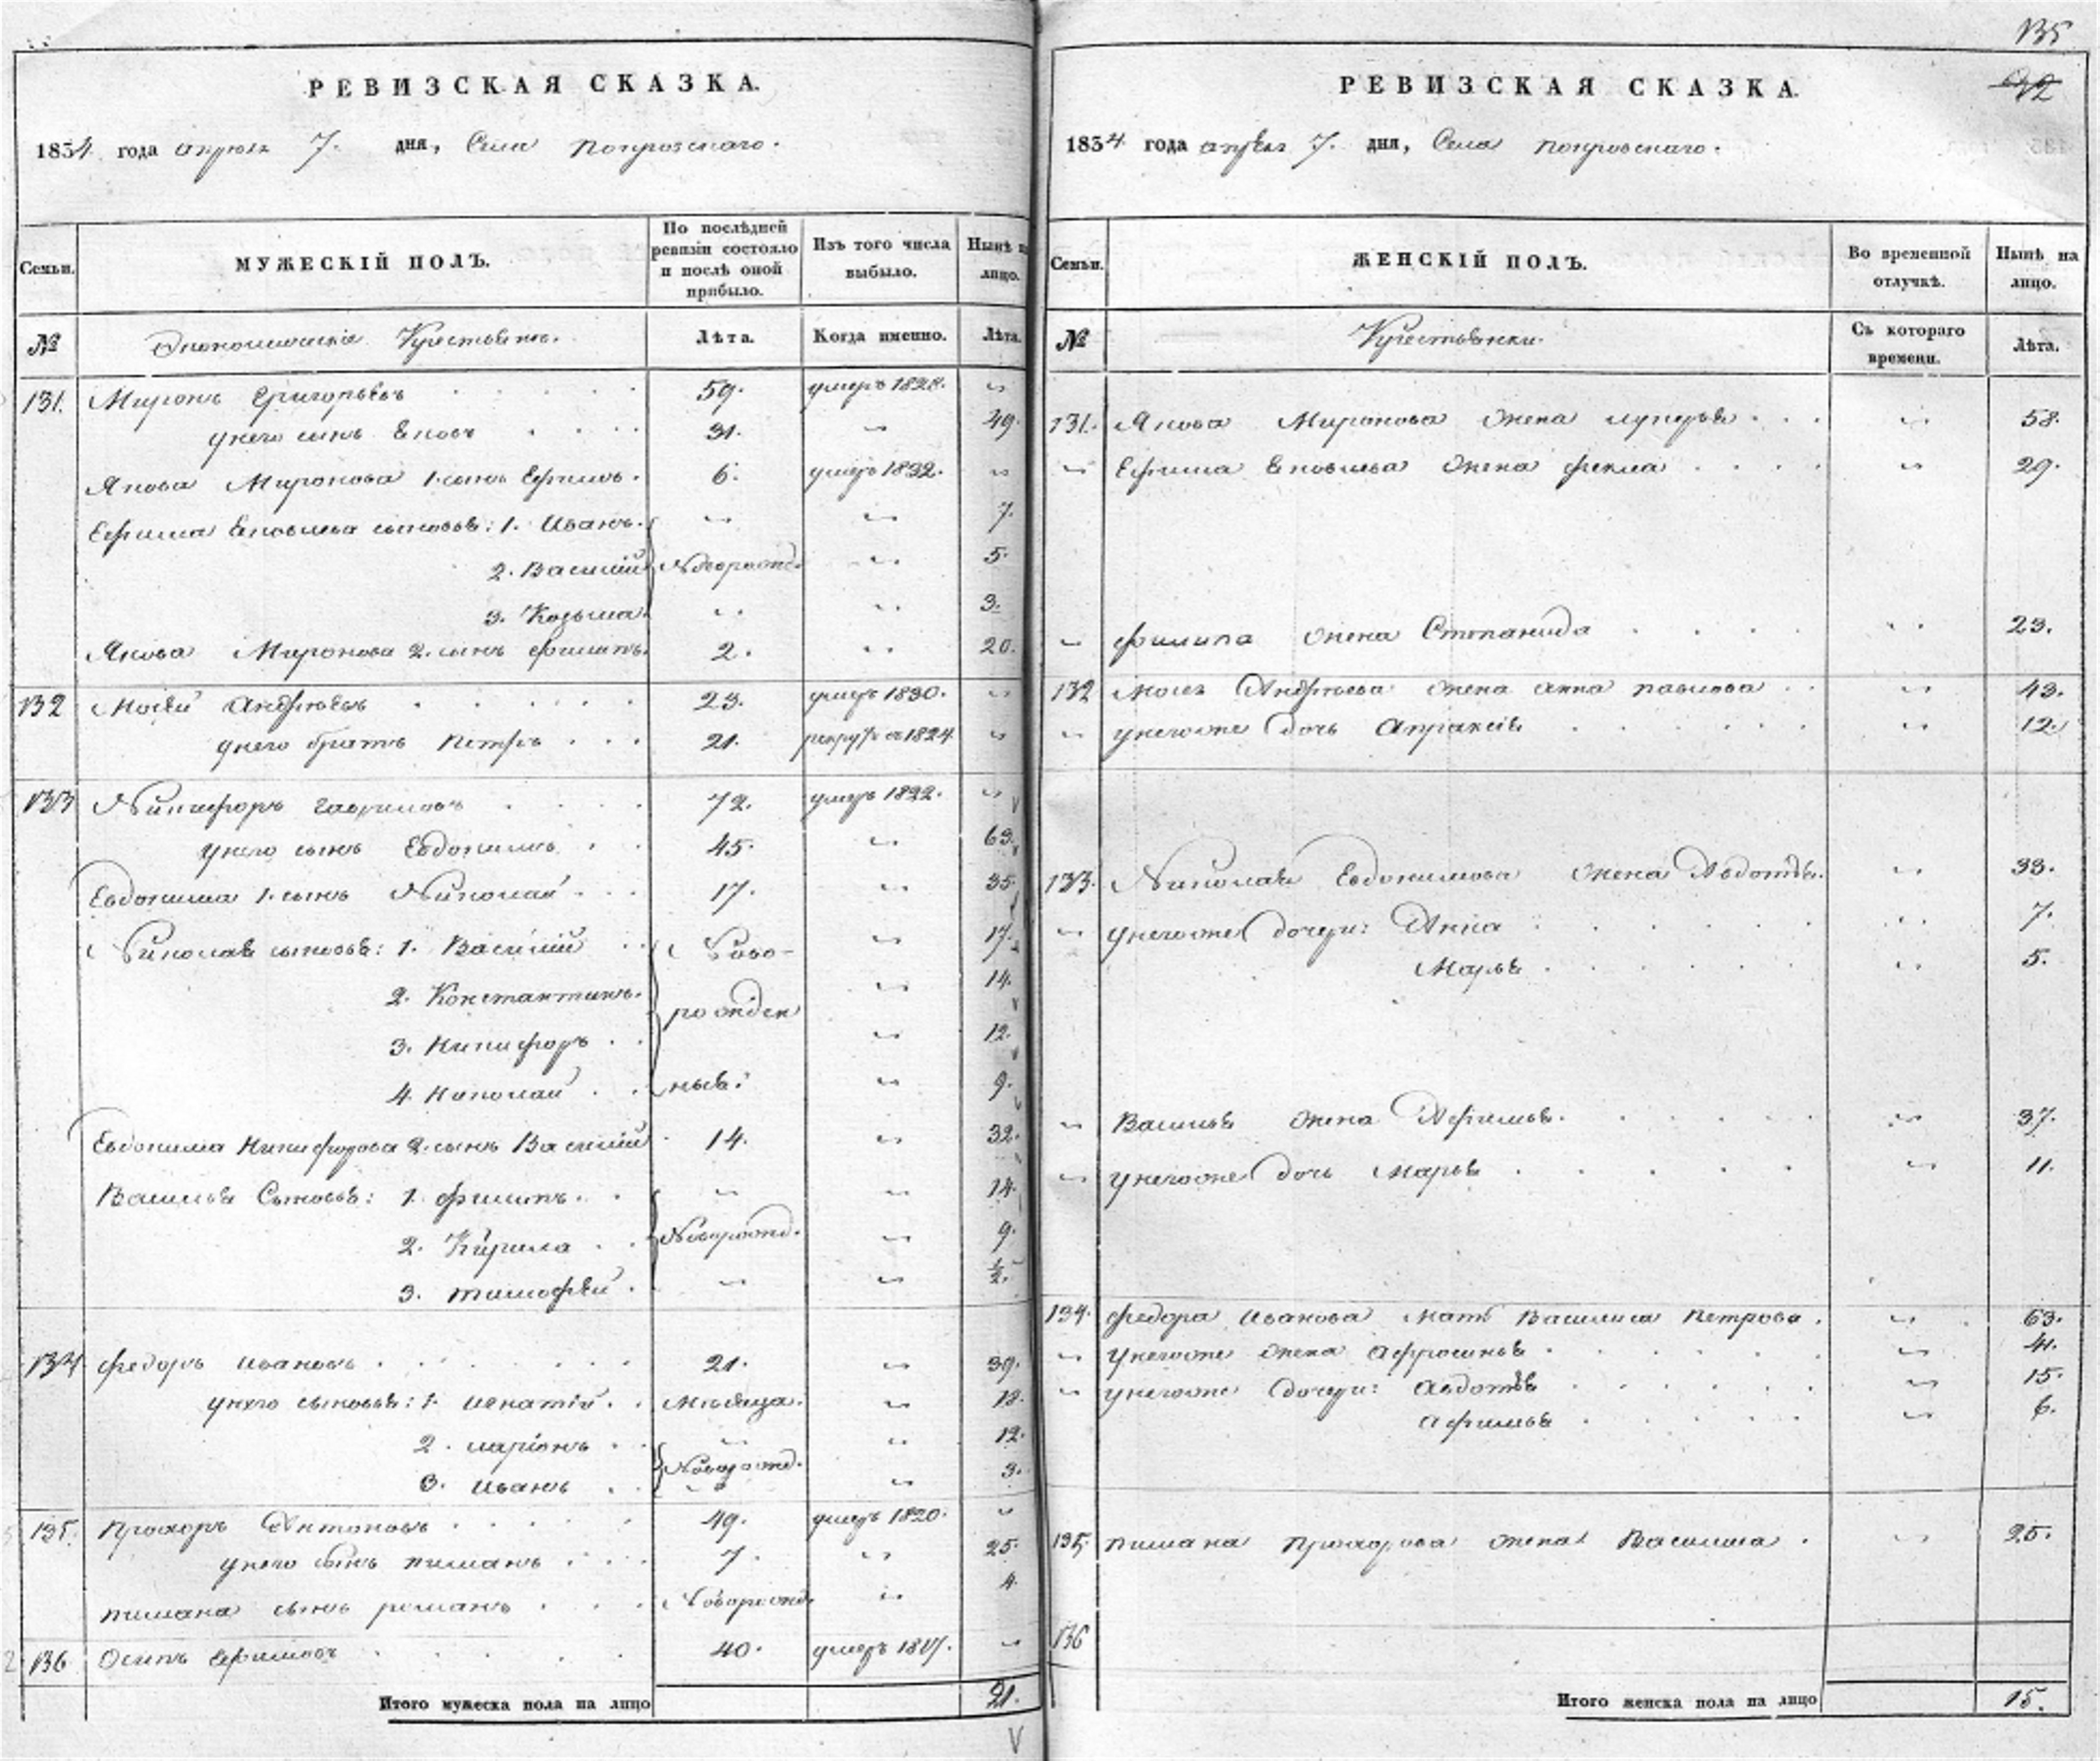 135
92
РЕВИЗСКАЯ СКАЗКА.
1834 года апреля 7. дня, Села Покровскаго.
Семьи.
МУЖЕСКІЙ ПОЛЪ.
По послѣдней ревизіи состояло и послѣ оной прибыло.
Изъ того числа выбыло.
Нынѣ на лицо.
№ Экономическіе Крестьяне. Лѣта. Когда именно. Лѣта.
131. Миронъ Григорьевъ 59. умеръ 1828. "
у него сынъ Яковъ 31. " 49.
Якова Миронова 1. сынъ Ефимъ. 6. умеръ 1832. "
Ефима Яковлева сыновья: 1. Иванъ. " " 7.
2. Василій Новорожд. " 5.
3. Козьма. " " 3.
Якова Миронова 2. сынъ Филипъ. 2. " 20.
132 Мосей Андреевъ 23. умеръ 1830. "
у него братъ Петръ 21. рекрут. съ 1824 "
133 Никифоръ Гавриловъ 72. умеръ 1822. "
у него сынъ Евдокимъ 45. " 63.
Евдокима 1. сынъ Николай 17. " 35.
Николая сыновья: 1. Василій Ново- " 17.
2. Константинъ. " 14.
3. Никифоръ рожден " 12.
4. Николай ные: " 9.
Евдокима Никифорова 2. сынъ Василій 14. " 32.
Василья Сыновья: 1. Филипъ. " " 14.
2. Кирила Новорожд. " 9.
3. Тимофей. " " ½.
134 Федоръ Ивановъ 21. " 39.
у него сыновья: 1. Игнатій. Мѣсяца. " 18.
2. Ларіонъ " " 12.
3. Иванъ Новорожд. " 3.
135. Прохоръ Антоновъ 49. умеръ 1820. "
у него сынъ Пиманъ 7. " 25.
Пимана сынъ Романъ Новорожд. " 4.
136 Осипъ Ефимовъ 40. умеръ 1817. "
Итого мужеска пола на лицо 21.
РЕВИЗСКАЯ СКАЗКА.
1834 года апреля 7. дня, Села Покровскаго.
Семьи.
ЖЕНСКІЙ ПОЛЪ.
Во временной отлучкѣ.
Нынѣ на лицо.
№ Крестьянки. Съ котораго времени. Лѣта.
131. Якова Миронова жена Лукерья " 58.
" Ефима Яковлева жена Фекла " 29.
" Филипа жена Степанида " 23.
132 Мосея Андреева жена Анна Павлова " 43.
" у него же дочь Апраксія " 12.
133. Николая Евдокимова жена Авдотья. " 33.
" у него же дочери: Анна " 7.
Марья " 5.
" Василья жена Афимья. " 37.
" у него же дочь Марья " 11.
134. Федора Иванова мать Василиса Петрова. " 63.
" у него же жена Афросинья " 41.
" у него же дочери: Авдотья " 15.
Афимья " 6.
135. Пимана Прохорова жена Василиса " 25.
136
Итого женска пола на лицо 15.